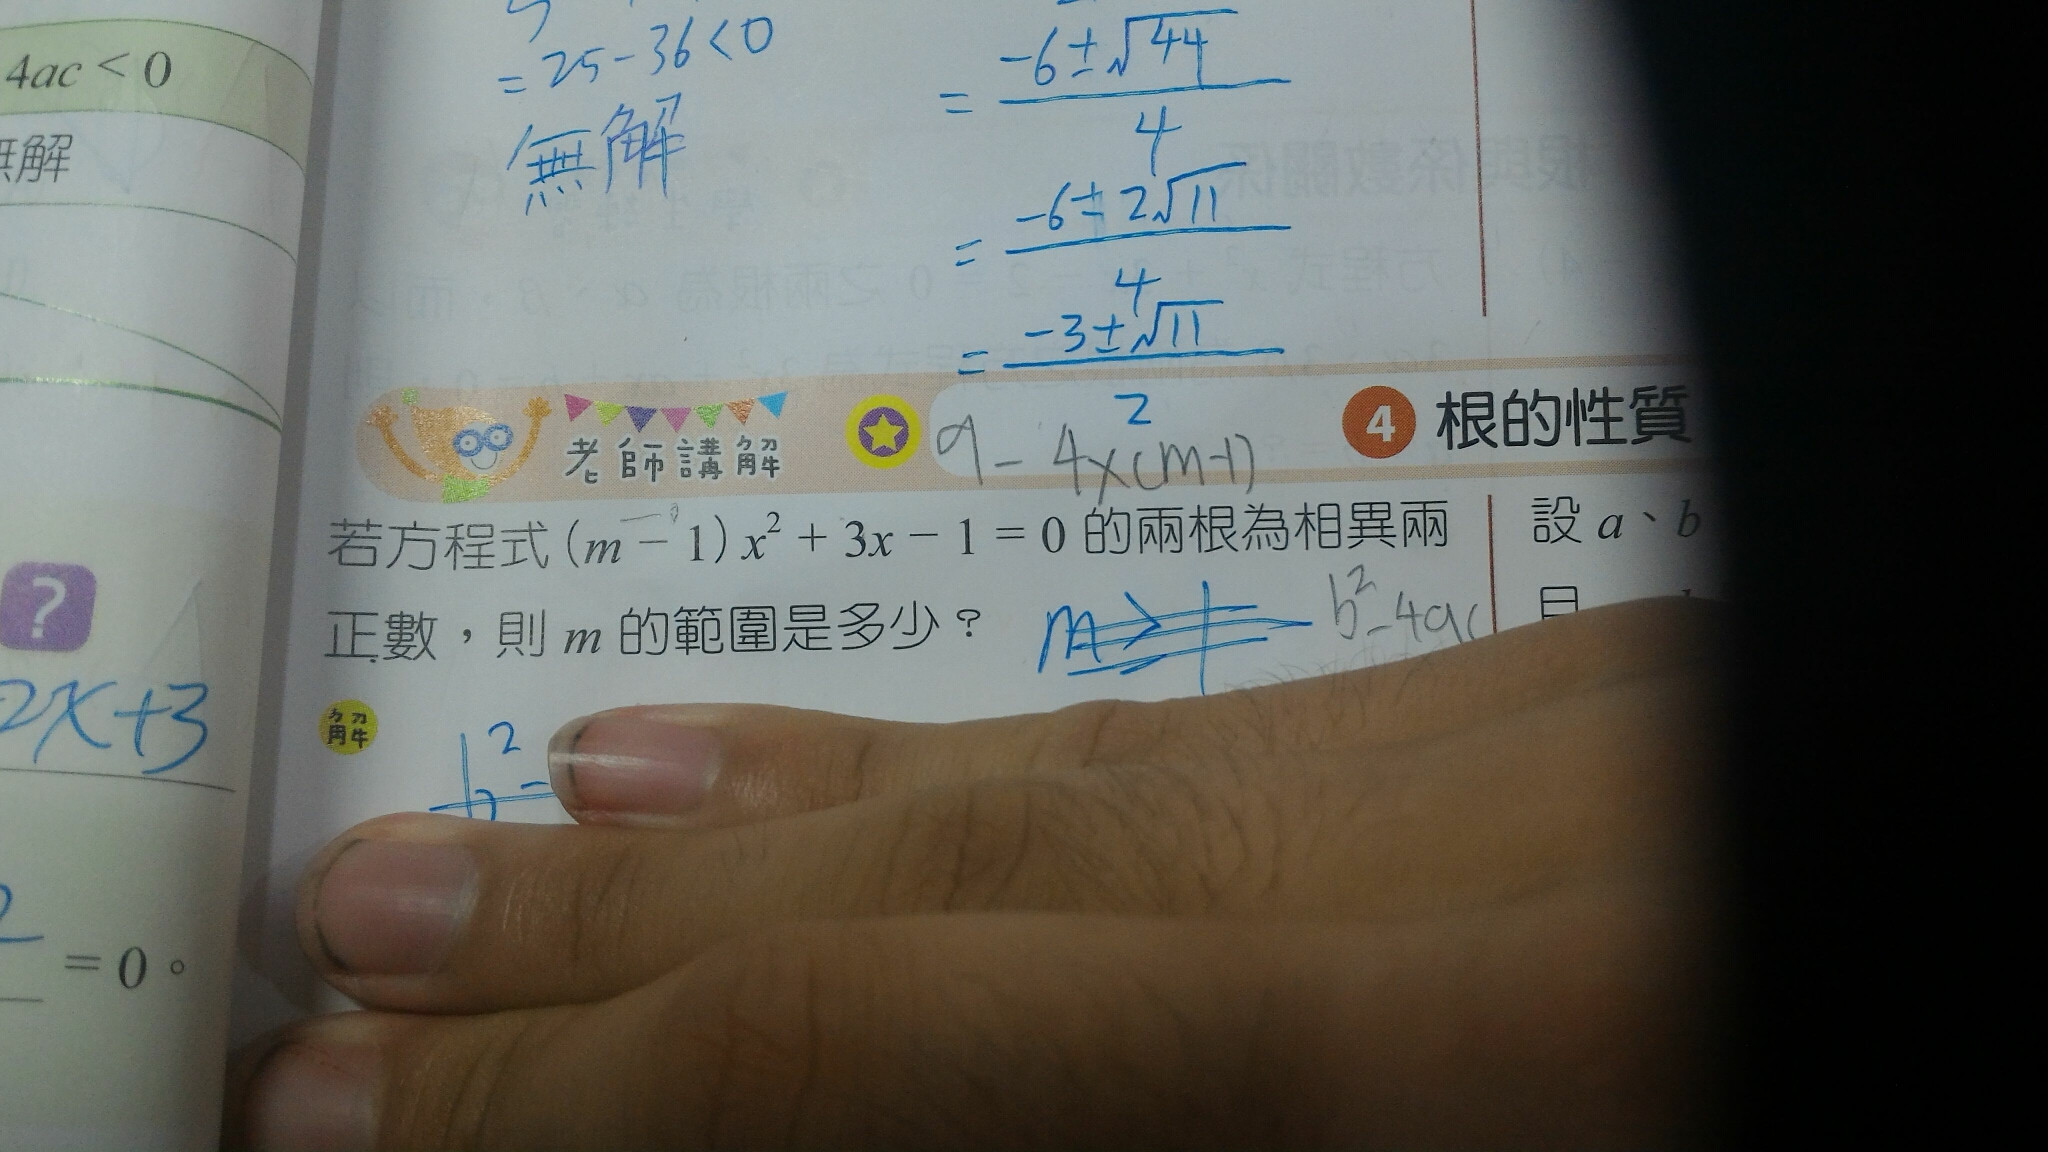 4ac < 0
無解
= 25 - 36 < 0
無解
= \frac{-6±√44}{4}
= \frac{-6±2√11}{4}
= \frac{-3±√11}{2}
老師講解
9 - 4×(m-1)
4 根的性質
若方程式(m－1)x²＋3x－1＝0的兩根為相異兩
正數，則 m 的範圍是多少？
b²-4ac
解
b² -
設 a、b
?
2x+3
= 0。